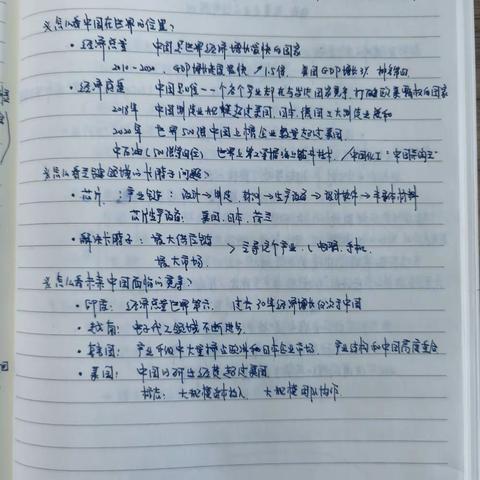 怎么看中国在世界的位置？
· 经济总量 中国是世界经济增长最快的国家
2010-2020 GDP增长速度最快 1.5倍 美国GDP增长3%
· 经济质量 中国是唯一一个产业都在与发达国家竞争，打破欧美霸权的国家
2018年 中国制造业规模超过美国、日本、德国三大制造业总和
2020年 世界500强中国上榜企业数量超过美国
中石油（500强第四位） 世界上
怎么看关键领域的卡脖子问题？
· 芯片：产业链：设计→制造 材料→生产设备→设计软件→半导体材料
芯片生产设备：美国、日本、荷兰
· 解决卡脖子：最大供应链 > 主导这个产业（电脑、手机
最大市场
怎么看未来中国面临的竞争？
· 印度：经济总量世界第六，过去30年经济增长仅次于中国
· 越南：电子代工领域不断进步
· 韩国：产业升级中大量抢占欧洲和日本企业市场，产业结构和中国高度重合
· 美国：中国的研发经费超过美国
标志：大规模资本投入 大规模团队协作